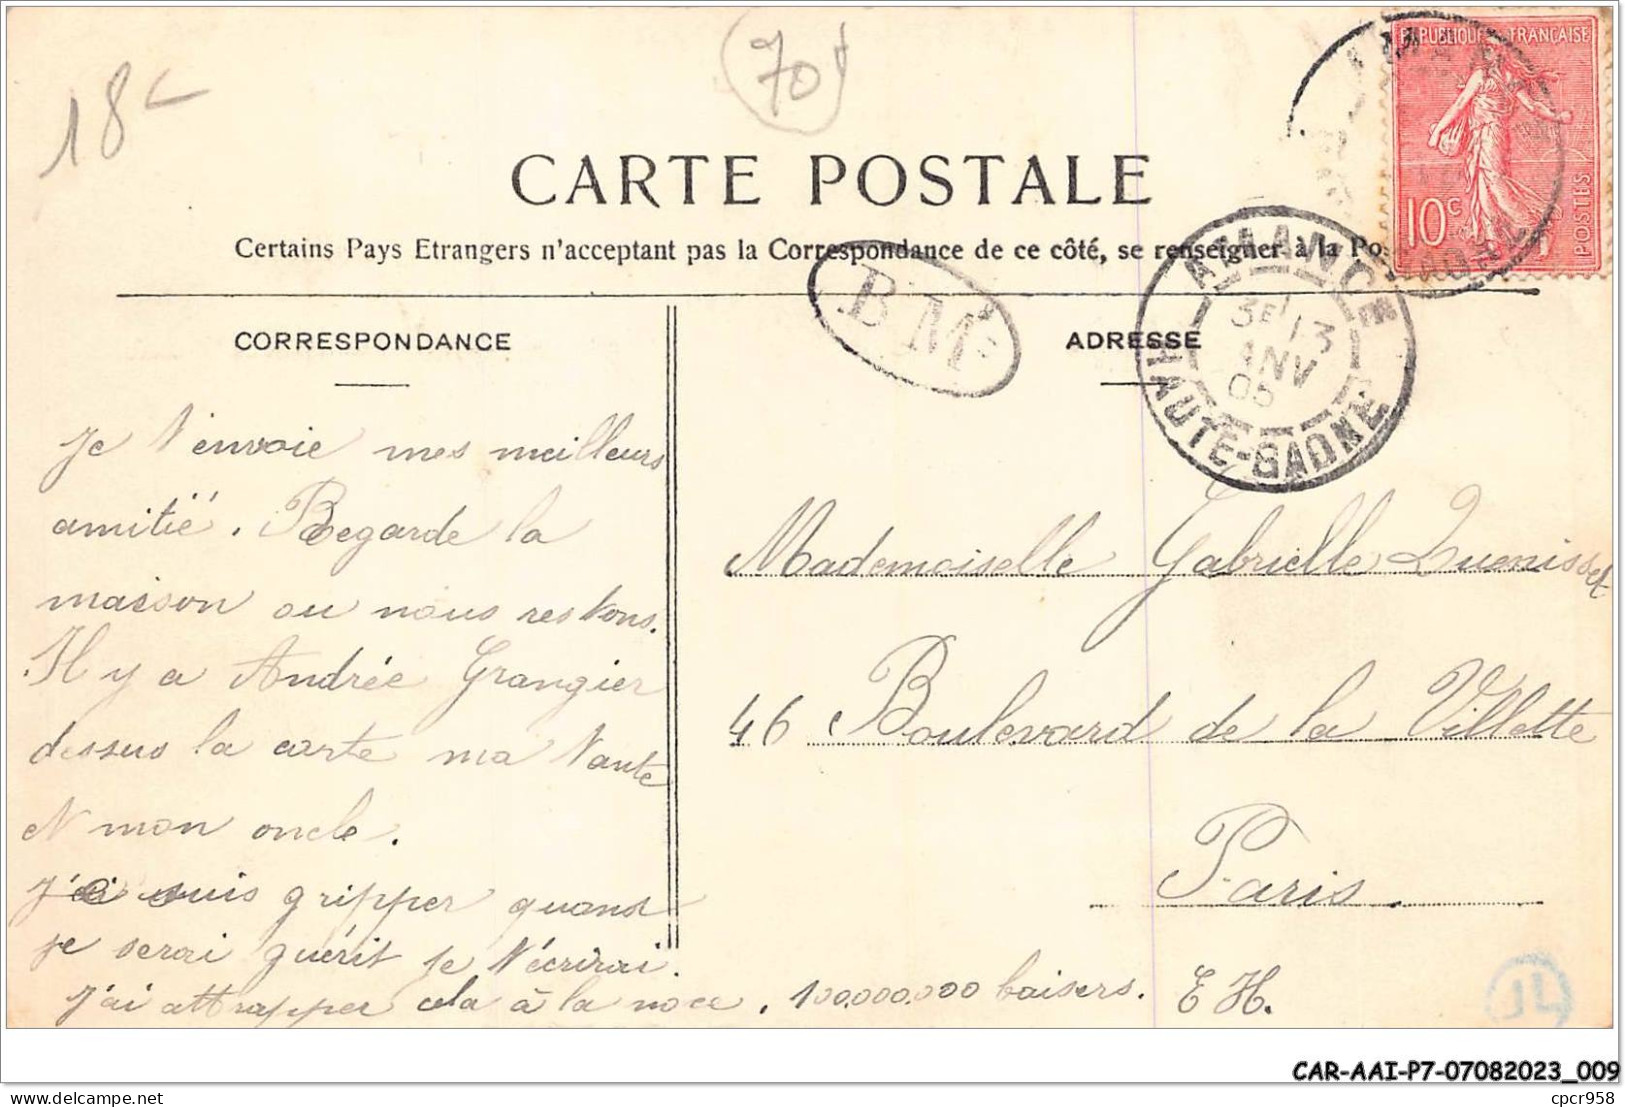 18
70
RÉPUBLIQUE FRANÇAISE
10c
POSTES
CARTE POSTALE
Certains Pays Etrangers n'acceptant pas la Correspondance de ce côté, se renseigner à la Po
B M
AMANCE
3E 13
ANV
05
HAUTE-SAONE
CORRESPONDANCE
ADRESSE
Je t'envoie mes meilleurs
amitié. Regarde la
maison ou nous restons.
Il y a Andrée Grangier
dessus la carte ma tante
et mon oncle.
suis gripper quand
je serai guérit je t'écrirai.
j'ai attrapper cela à la noce. 100.000.000 baisers. E H.
Mademoiselle Gabrielle Quenisset
46 Boulevard de la Villette
Paris.
JL
CAR-AAI-P7-07082023_009
cpcr958